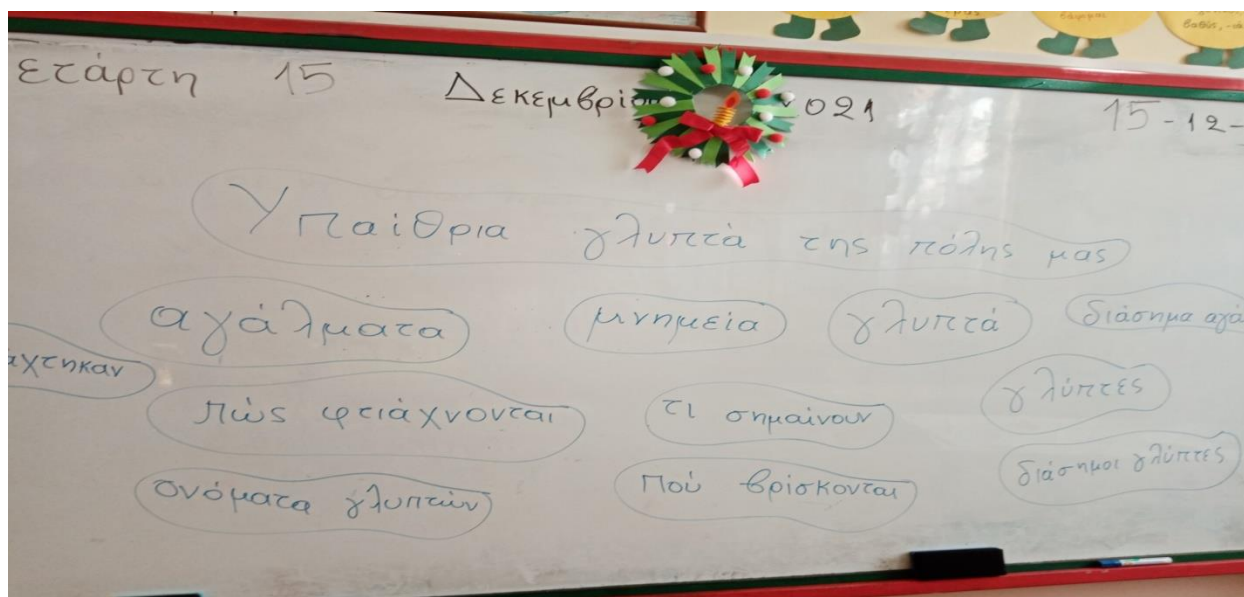 ετάρτη 15 Δεκεμβρίο 021 15-12-
Υπαίθρια γλυπτά της πόλης μας
αγάλματα μνημεία γλυπτά διάσημα αγά
άχτηκαν
πώς φτιάχνονται τι σημαίνουν γλύπτες
ονόματα γλυπτών πού βρίσκονται διάσημοι γλύπτες